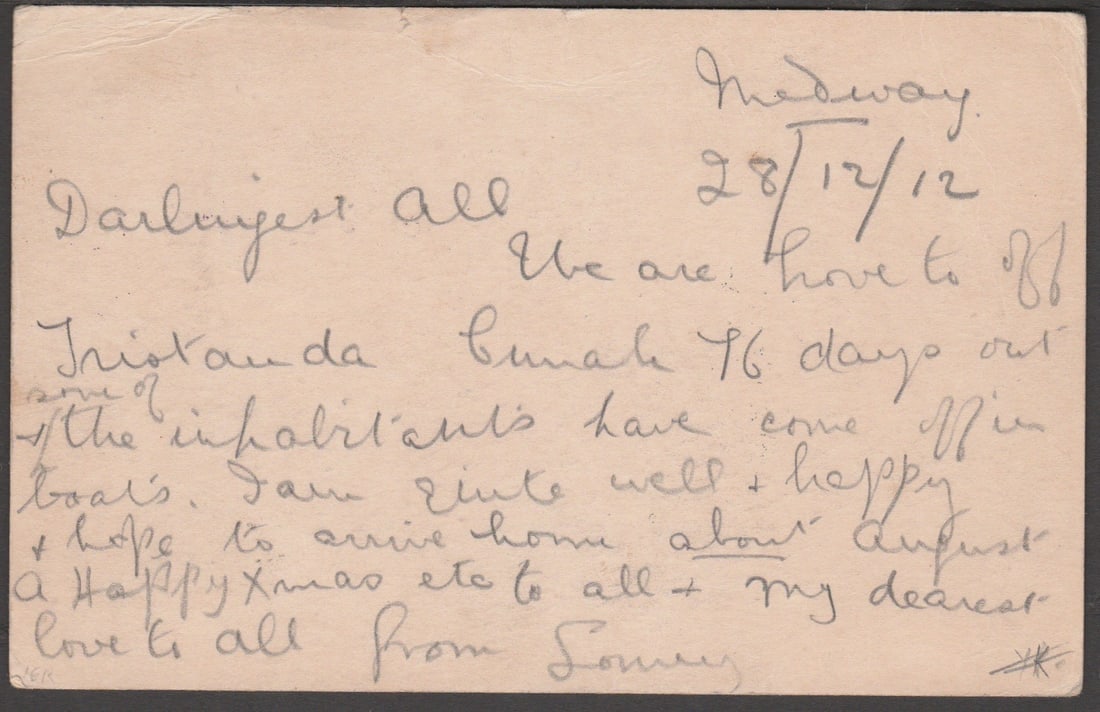 Medway
28/12/12
Darlingest All
We are hove to off
Tristan da Cunah 76 days out
some of
+ the inhabitants have come off in
boats. I am quite well + happy
+ hope to arrive home about August
A Happy Xmas etc to all + my dearest
love to all from